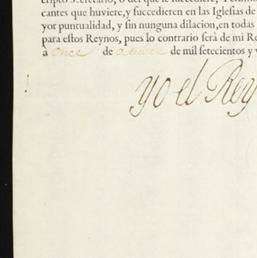 cripto Secretario, ò del que le succediere, 
cantes que huviere, y succedieren en las Iglesias de
yor puntualidad, y sin ninguna dilacion, en todas
para estos Reynos, pues lo contrario serà de mi R
à once de de mil setecientos y v
yo el Rey